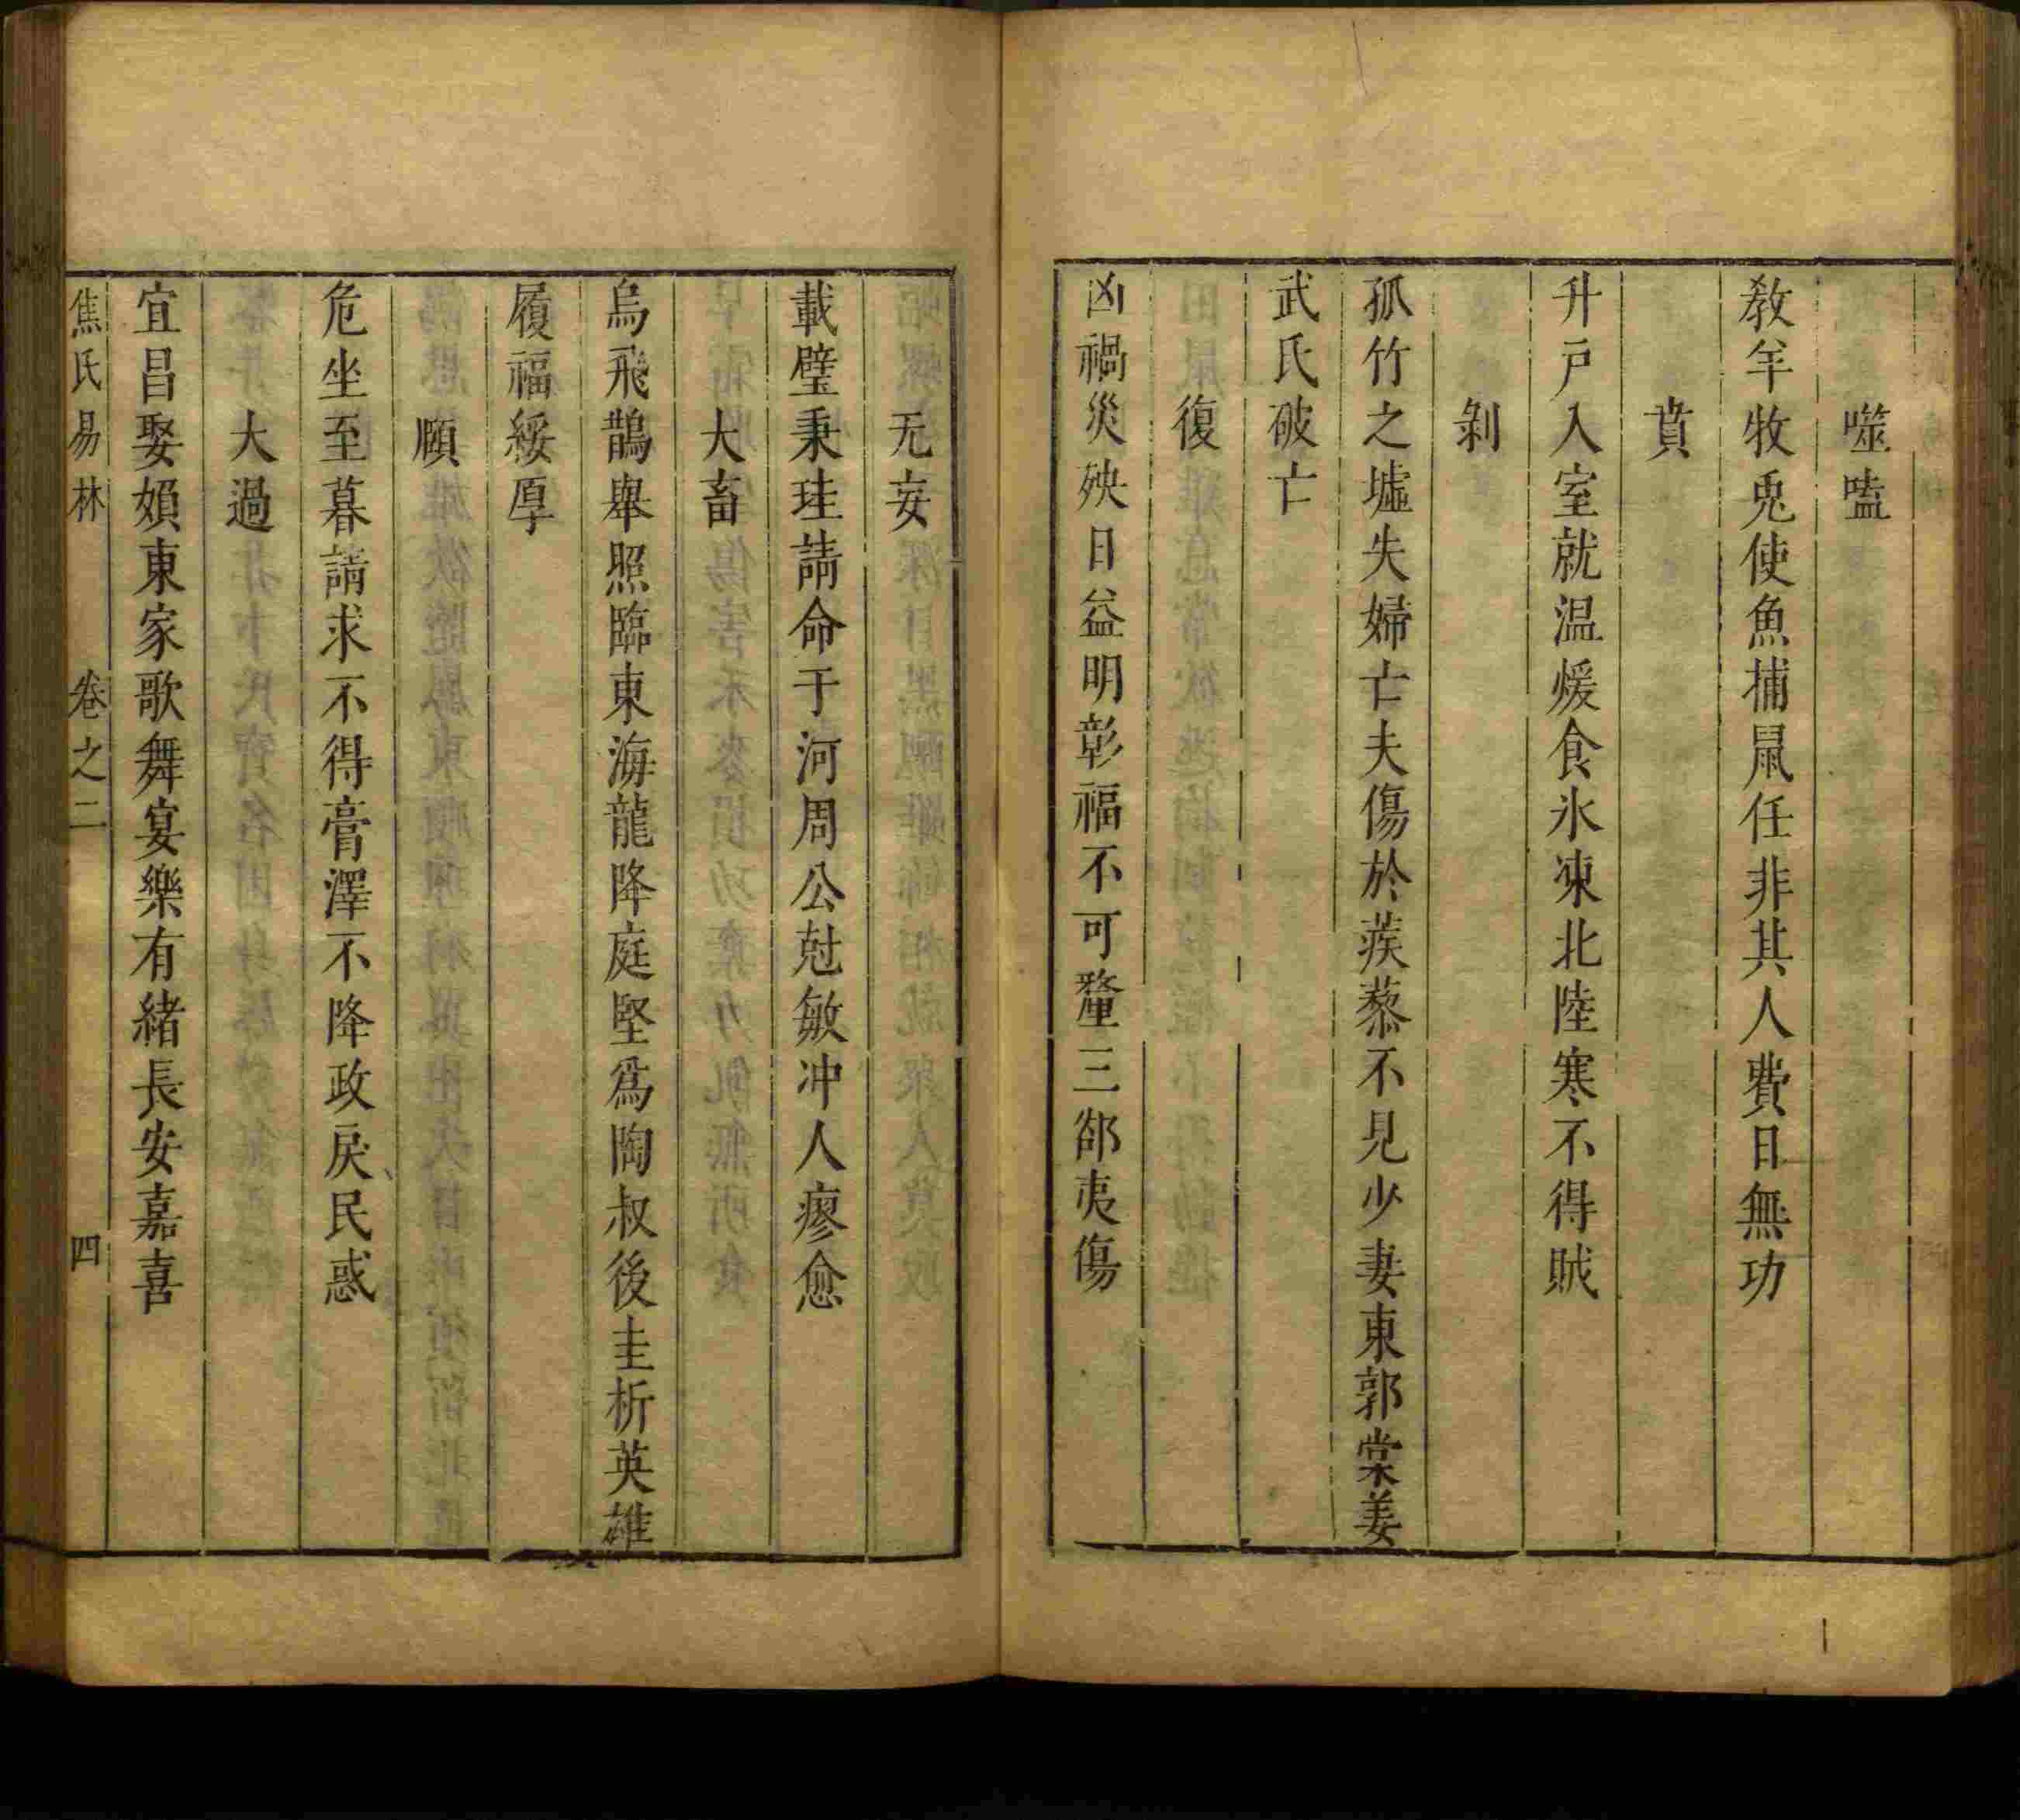 噬嗑
敎羊牧兎使魚捕鼠任非其人費日無功
賁
升戸入室就温煖食氷凍北陸寒不得賊
剝
孤竹之墟失婦亡夫傷於蒺藜不見少妻東郭棠姜
武氏破亡
復
凶禍災殃日益明彰福不可釐三郤夷傷
无妄
載璧秉珪請命于河周公尅敏冲人瘳愈
大畜
烏飛鵲舉照臨東海龍降庭堅爲陶叔後圭析英雄
履福綏厚
頤
危坐至暮請求不得膏澤不降政戾民惑
大過
宜昌娶媍東家歌舞宴樂有緒長安嘉喜
焦氏易林 卷之二 四